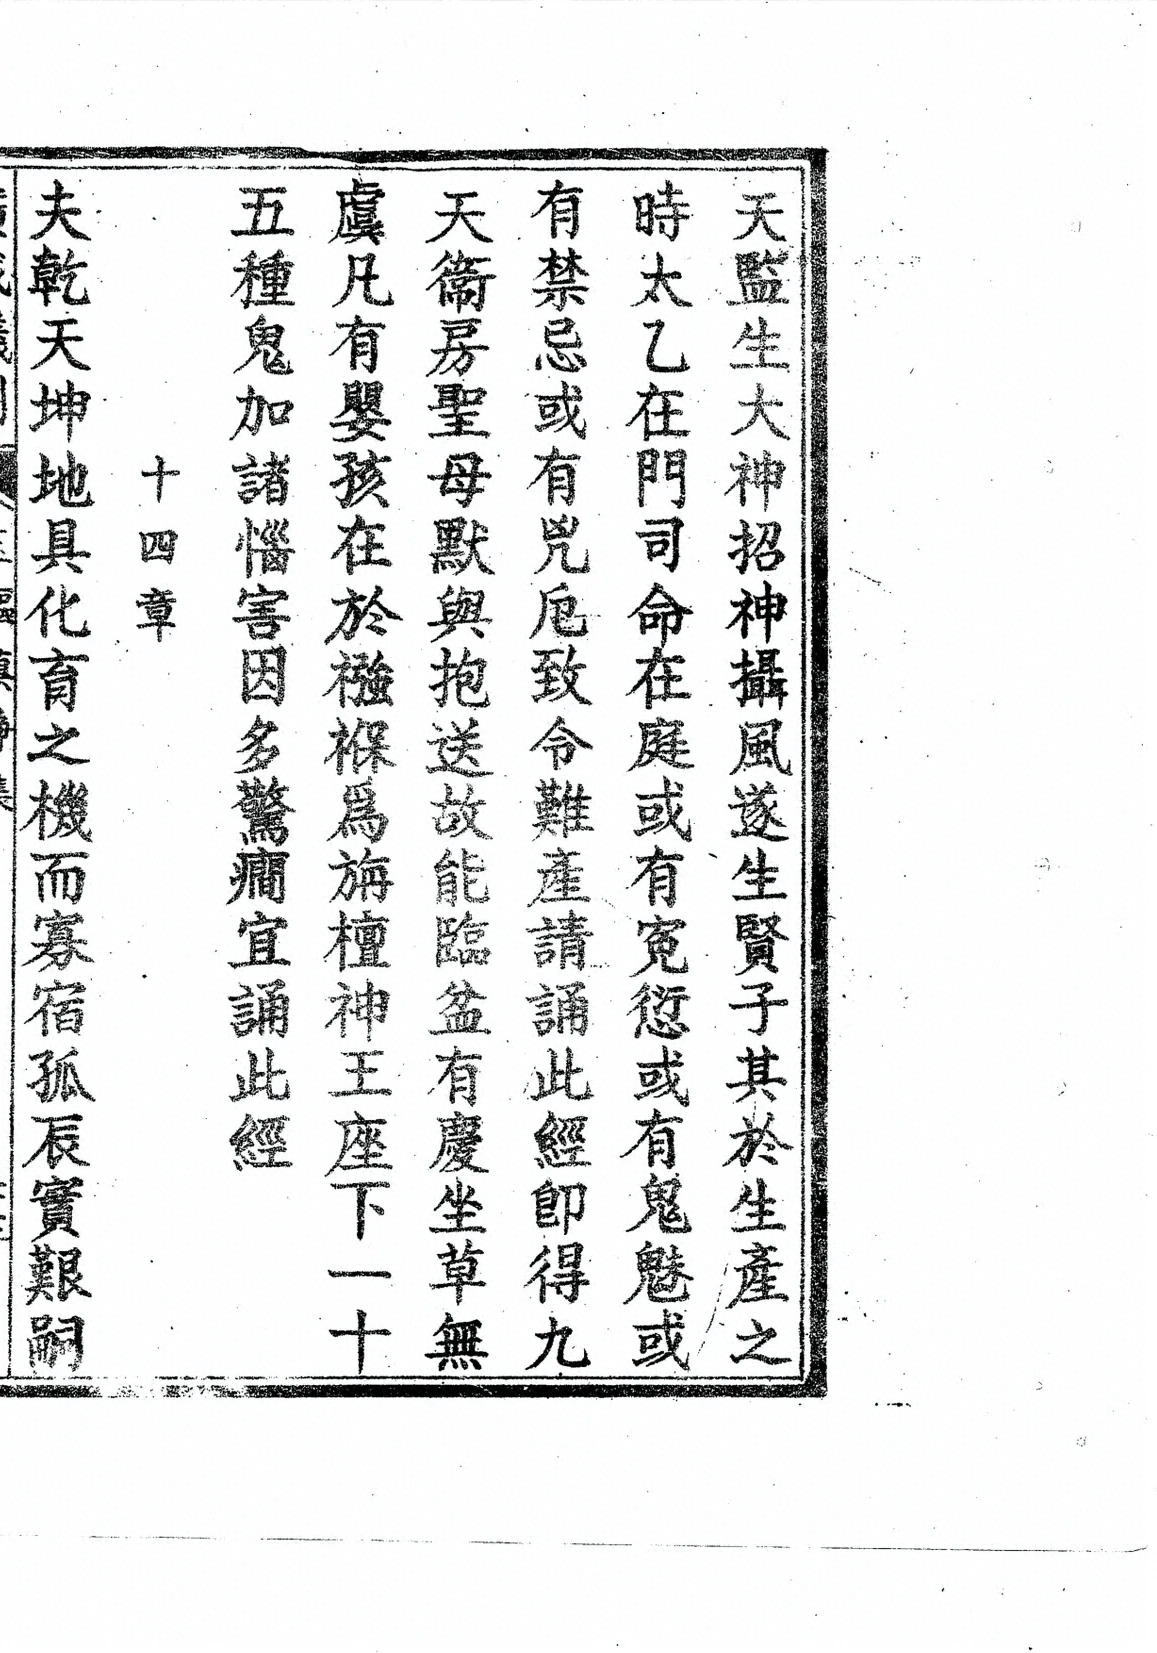 天監生大神招神攝風遂生賢子其於生產之
時太乙在門司命在庭或有寃愆或有鬼魅或
有禁忌或有兇厄致令難產請誦此經即得九
天衞房聖母默與抱送故能臨盆有慶坐草無
虞凡有嬰孩在於襁褓爲旃檀神王座下一十
五種鬼加諸惱害因多驚癇宜誦此經
十四章
夫乾天坤地具化育之機而寡宿孤辰實艱嗣